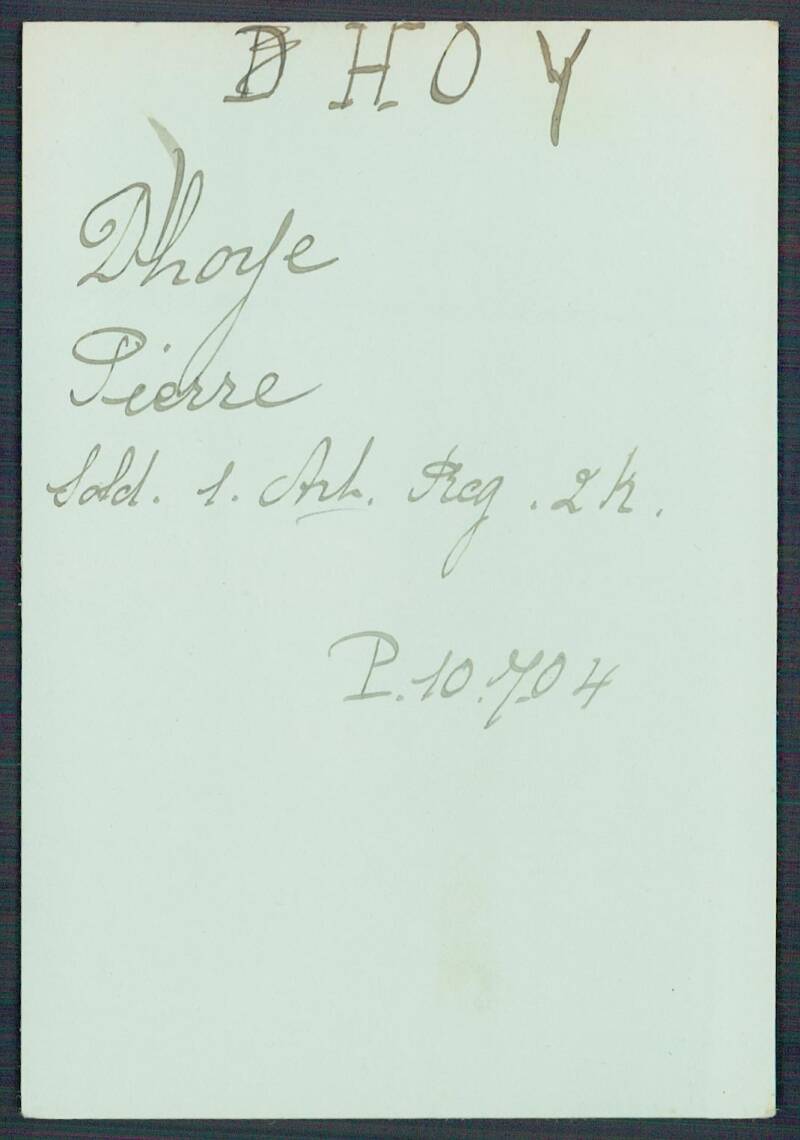 DHOY
D'hoye
Pierre
Sold. 1. Art. Reg. 2 K.
P. 10.704